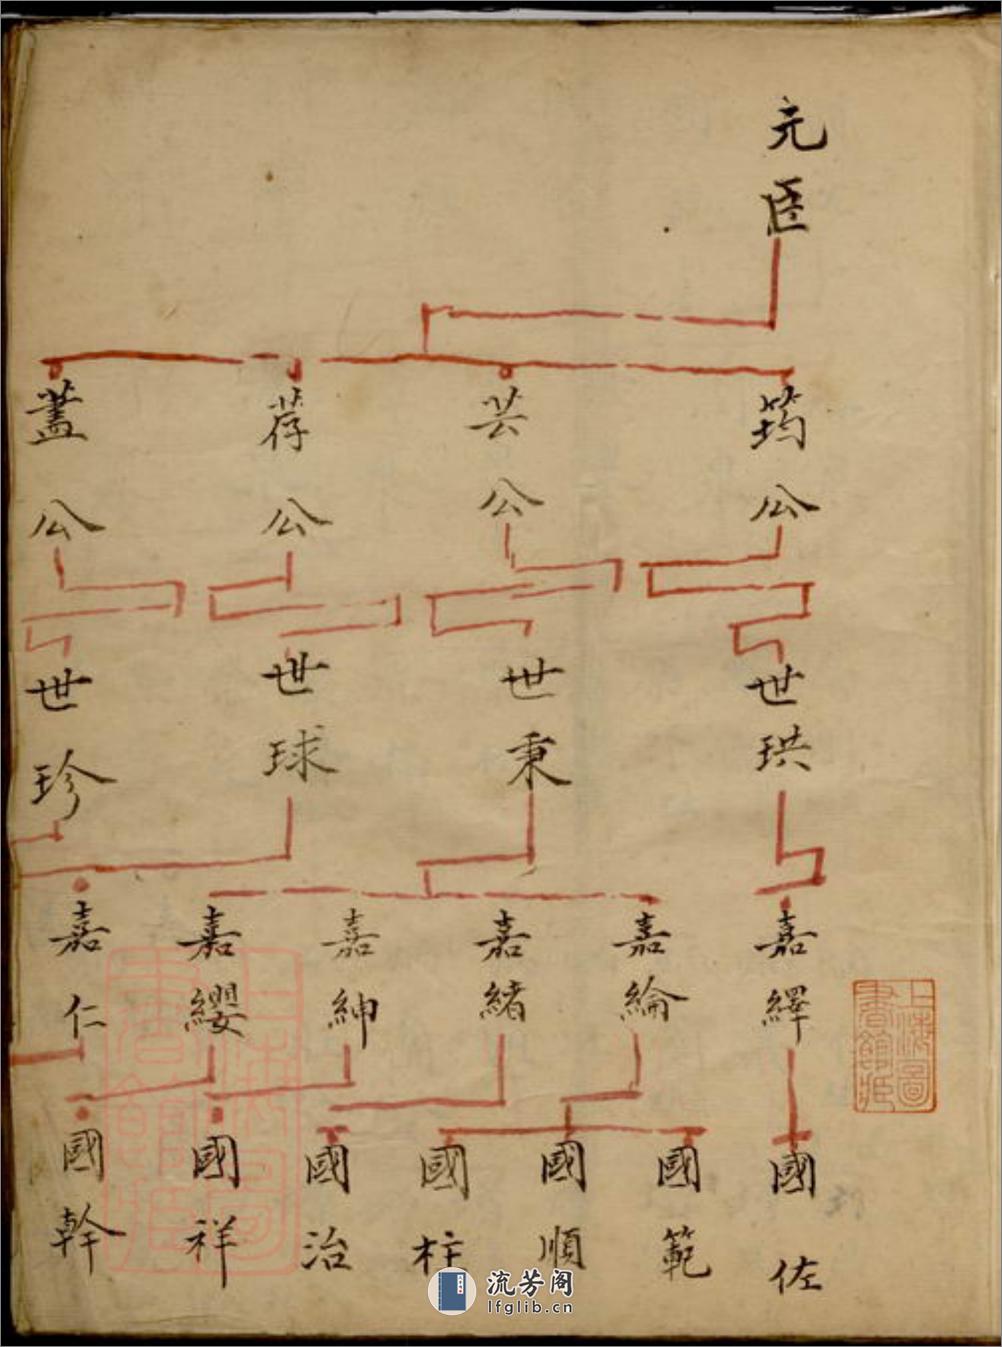 元臣
筠公
芸公
荐公
蓋公
世珙
世秉
世球
世珍
嘉繹
嘉綸
嘉緒
嘉紳
嘉纓
嘉仁
國佐
國範
國順
國柱
國治
國祥
國幹
上海圖
書館藏
上海圖
書館藏
流芳阁
lfglib.cn